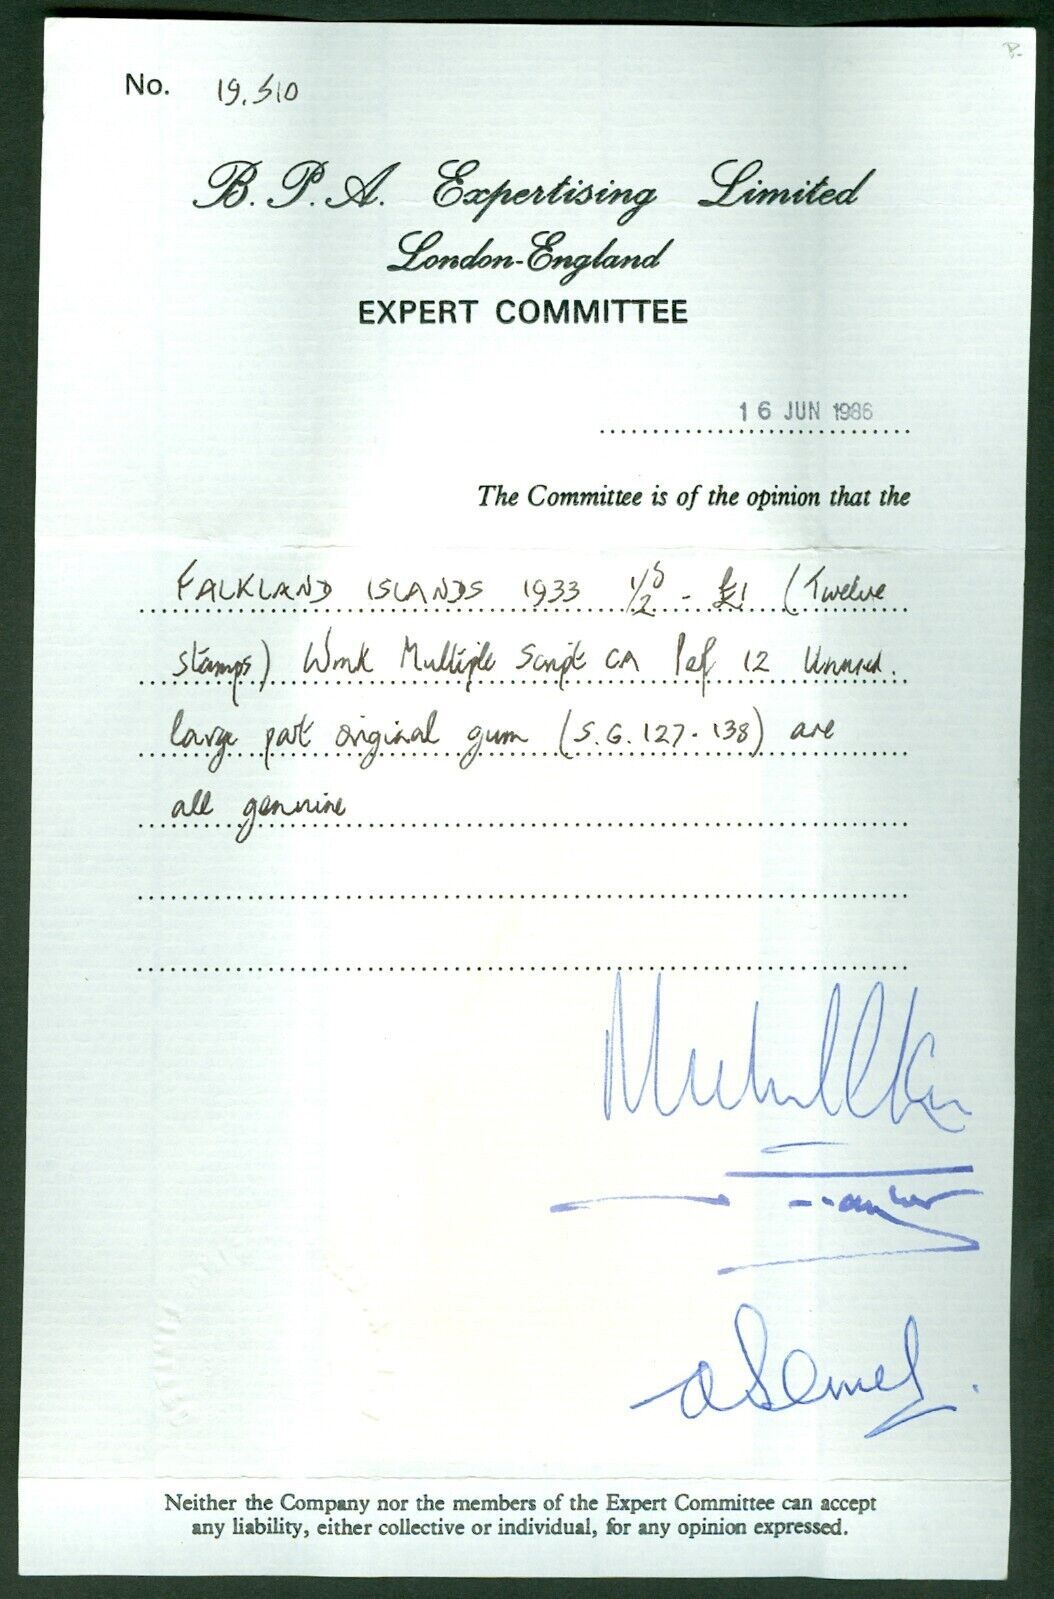 No. 19,510
B. P. A. Expertising Limited
London-England
EXPERT COMMITTEE
16 JUN 1986
The Committee is of the opinion that the
FALKLAND ISLANDS 1933 ½d - £1 (Twelve
stamps) Wmk Multiple Script CA Perf 12 Unused.
large part original gum (S.G. 127-138) are
all genuine
Neither the Company nor the members of the Expert Committee can accept
any liability, either collective or individual, for any opinion expressed.